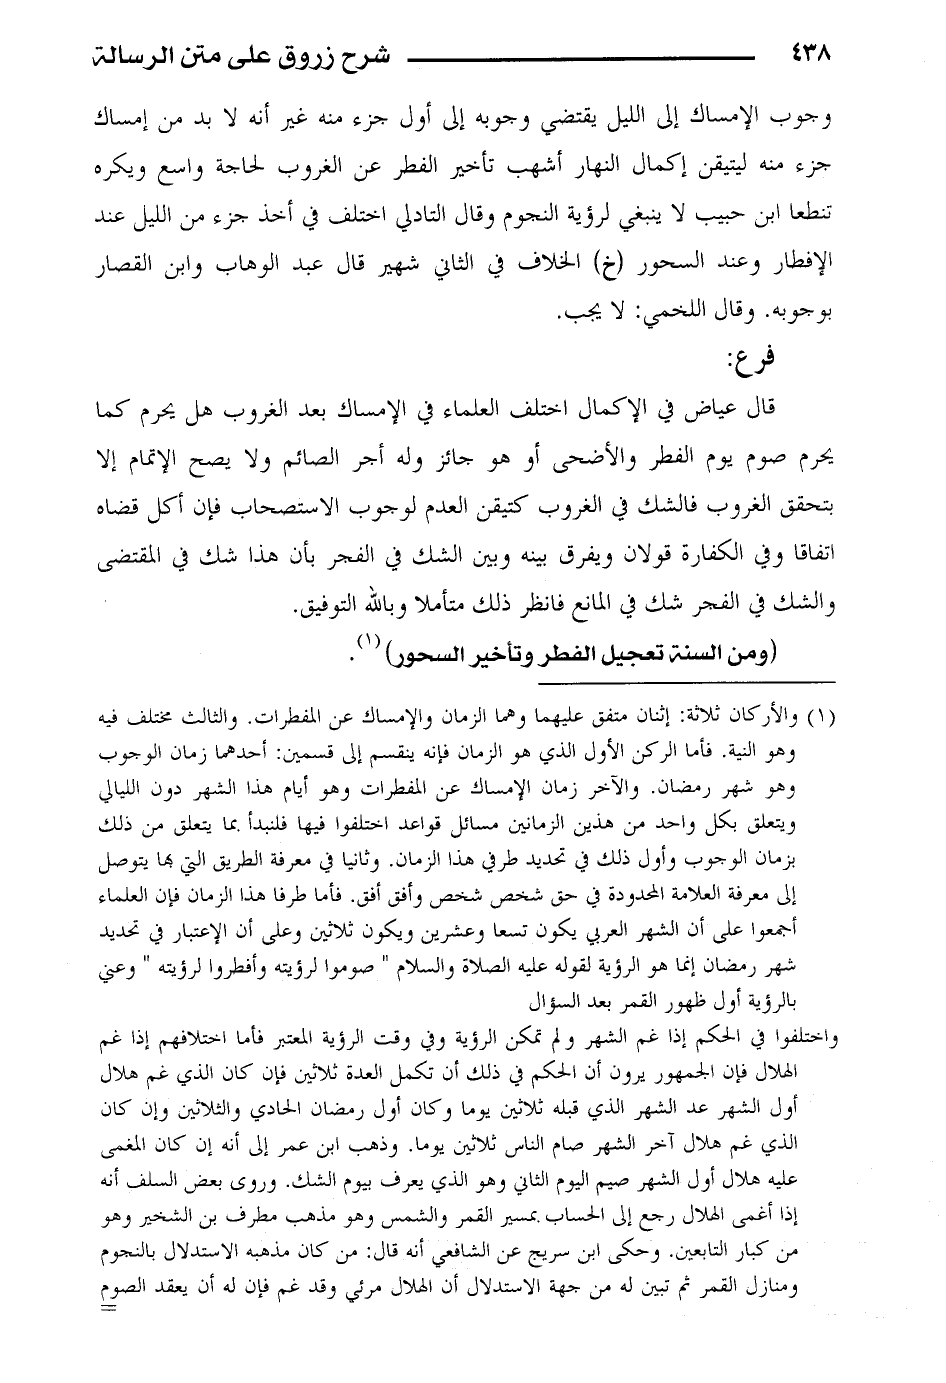 ٤٣٨ شرح زروق على متن الرسالة
وجوب الإمساك إلى الليل يقتضي وجوبه إلى أول جزء منه غير أنه لا بد من إمساك
جزء منه ليتيقن إكمال النهار أشهب تأخير الفطر عن الغروب لحاجة واسع ويكره
تنطعا ابن حبيب لا ينبغي لرؤية النجوم وقال التادلي اختلف في أخذ جزء من الليل عند
الإفطار وعند السحور (خ) الخلاف في الثاني شهير قال عبد الوهاب وابن القصار
بوجوبه. وقال اللخمي: لا يجب.
فرع:
قال عياض في الإكمال اختلف العلماء في الإمساك بعد الغروب هل يحرم كما
يحرم صوم يوم الفطر والأضحى أو هو جائز وله أجر الصائم ولا يصح الإتمام إلا
بتحقق الغروب فالشك في الغروب كتيقن العدم لوجوب الاستصحاب فإن أكل قضاه
اتفاقا وفي الكفارة قولان ويفرق بينه وبين الشك في الفجر بأن هذا شك في المقتضى
والشك في الفجر شك في المانع فانظر ذلك متأملا وبالله التوفيق.
(ومن السنة تعجيل الفطر وتأخير السحور)(١).
(١) والأركان ثلاثة: إثنان متفق عليهما وهما الزمان والإمساك عن المفطرات. والثالث مختلف فيه
وهو النية. فأما الركن الأول الذي هو الزمان فإنه ينقسم إلى قسمين: أحدهما زمان الوجوب
وهو شهر رمضان. والآخر زمان الإمساك عن المفطرات وهو أيام هذا الشهر دون الليالي
ويتعلق بكل واحد من هذين الزمانين مسائل قواعد اختلفوا فيها فلنبدأ بما يتعلق من ذلك
بزمان الوجوب وأول ذلك في تحديد طرفي هذا الزمان. وثانيا في معرفة الطريق التي بها يتوصل
إلى معرفة العلامة المحدودة في حق شخص شخص وأفق أفق. فأما طرفا هذا الزمان فإن العلماء
أجمعوا على أن الشهر العربي يكون تسعا وعشرين ويكون ثلاثين وعلى أن الإعتبار في تحديد
شهر رمضان إنما هو الرؤية لقوله عليه الصلاة والسلام " صوموا لرؤيته وأفطروا لرؤيته " وعني
بالرؤية أول ظهور القمر بعد السؤال
واختلفوا في الحكم إذا غم الشهر ولم تمكن الرؤية وفي وقت الرؤية المعتبر فأما اختلافهم إذا غم
الهلال فإن الجمهور يرون أن الحكم في ذلك أن تكمل العدة ثلاثين فإن كان الذي غم هلال
أول الشهر عد الشهر الذي قبله ثلاثين يوما وكان أول رمضان الحادي والثلاثين وإن كان
الذي غم هلال آخر الشهر صام الناس ثلاثين يوما. وذهب ابن عمر إلى أنه إن كان المغمى
عليه هلال أول الشهر صيم اليوم الثاني وهو الذي يعرف بيوم الشك. وروى بعض السلف أنه
إذا أغمى الهلال رجع إلى الحساب بمسير القمر والشمس وهو مذهب مطرف بن الشخير وهو
من كبار التابعين. وحكى ابن سريج عن الشافعي أنه قال: من كان مذهبه الاستدلال بالنجوم
ومنازل القمر ثم تبين له من جهة الاستدلال أن الهلال مرئي وقد غم فإن له أن يعقد الصوم
=